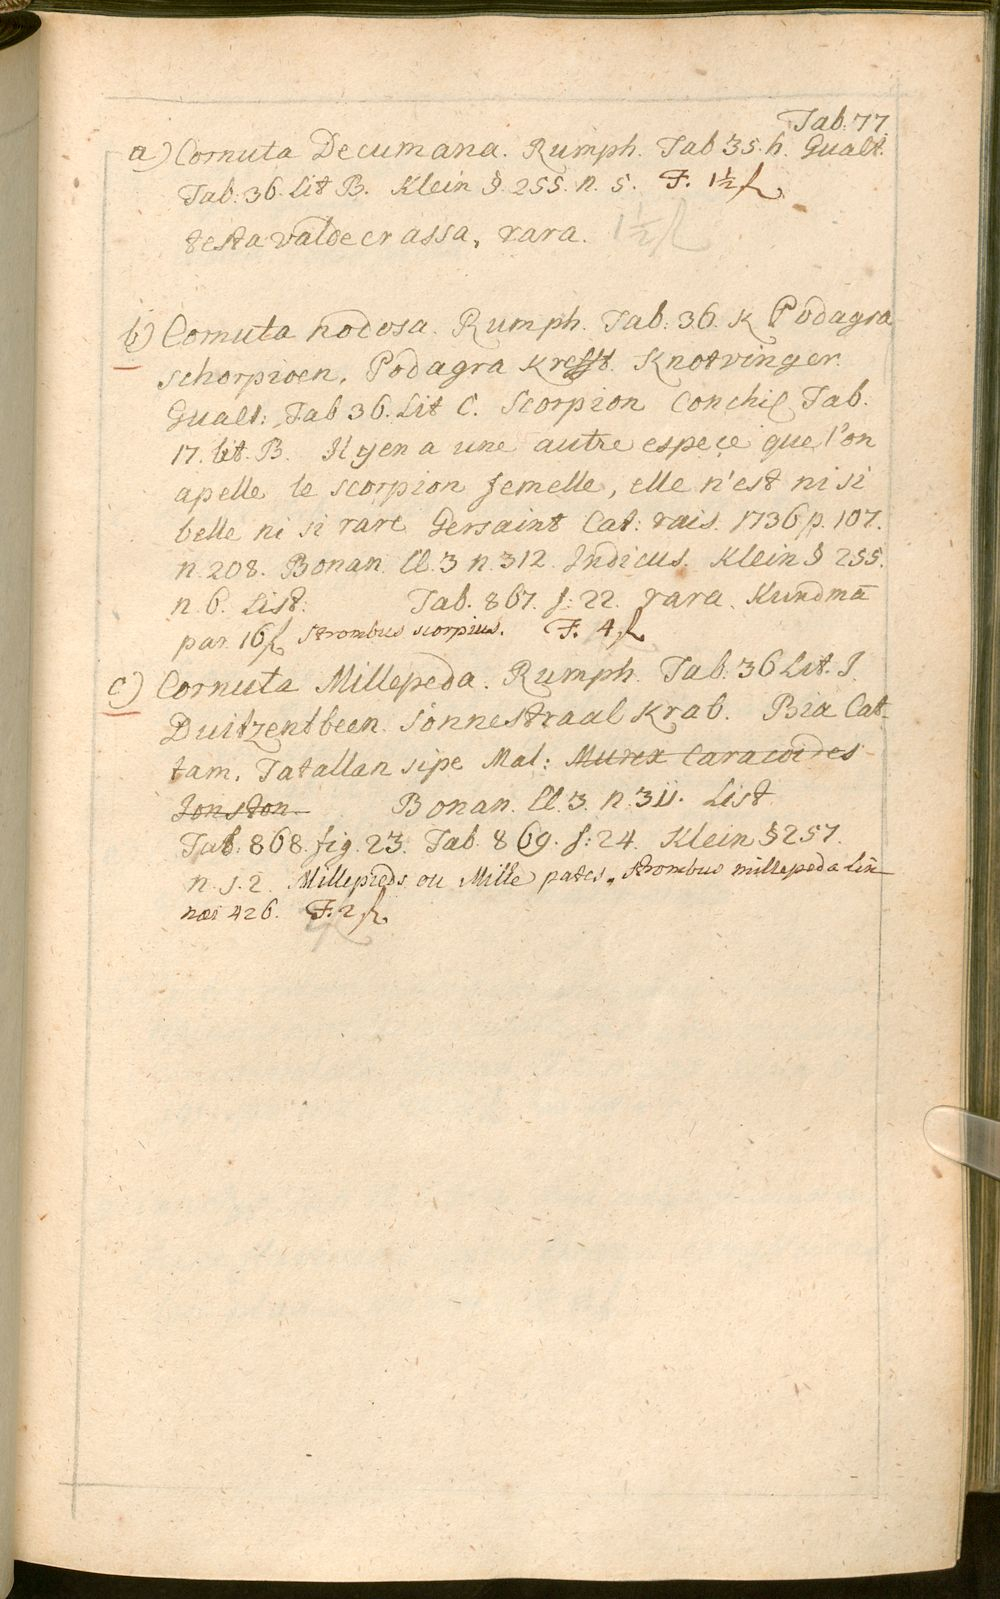 Tab. 77.
a) Cornuta Decumana. Rumph. Tab 35. h. Gualt.
Tab: 36. Lit B. Klein §. 255. n. 5. F. 1½ fl.
testa valde crassa, rara. 1½ fl
b) Cornuta nodosa. Rumph. Tab: 36. K Podagra
schorpioen, Podagra Krefft. Knotvinger.
Gualt: Tab 36. Lit C. Scorpion Conchil Tab.
17. lit. B. Il y en a une autre espece que l'on
apelle le scorpion femelle, elle n'est ni si
belle ni si rare Gersaint Cat: rais. 1736 p. 107.
n. 208. Bonan. Cl. 3 n. 312. Indicus. Klein § 255.
n. 6. List: Tab. 867. f: 22. rara. Kundmā
par. 16 fl Strombus scorpius. F. 4 fl
c) Cornuta Millepeda. Rumph. Tab. 36 Lit. I.
Duitzentbeen. Sonnestraal Krab. Bia Cat-
tam, Tatallan sipe Mal: Murex Caracoides
Jonston. Bonan. Cl. 3. n. 311. List
Tab. 868. fig. 23. Tab. 869. f: 24. Klein § 257.
n. 1. 2. Millepieds ou Mille pates. Strombus millepeda Lin-
næi 426. F. 2 fl.